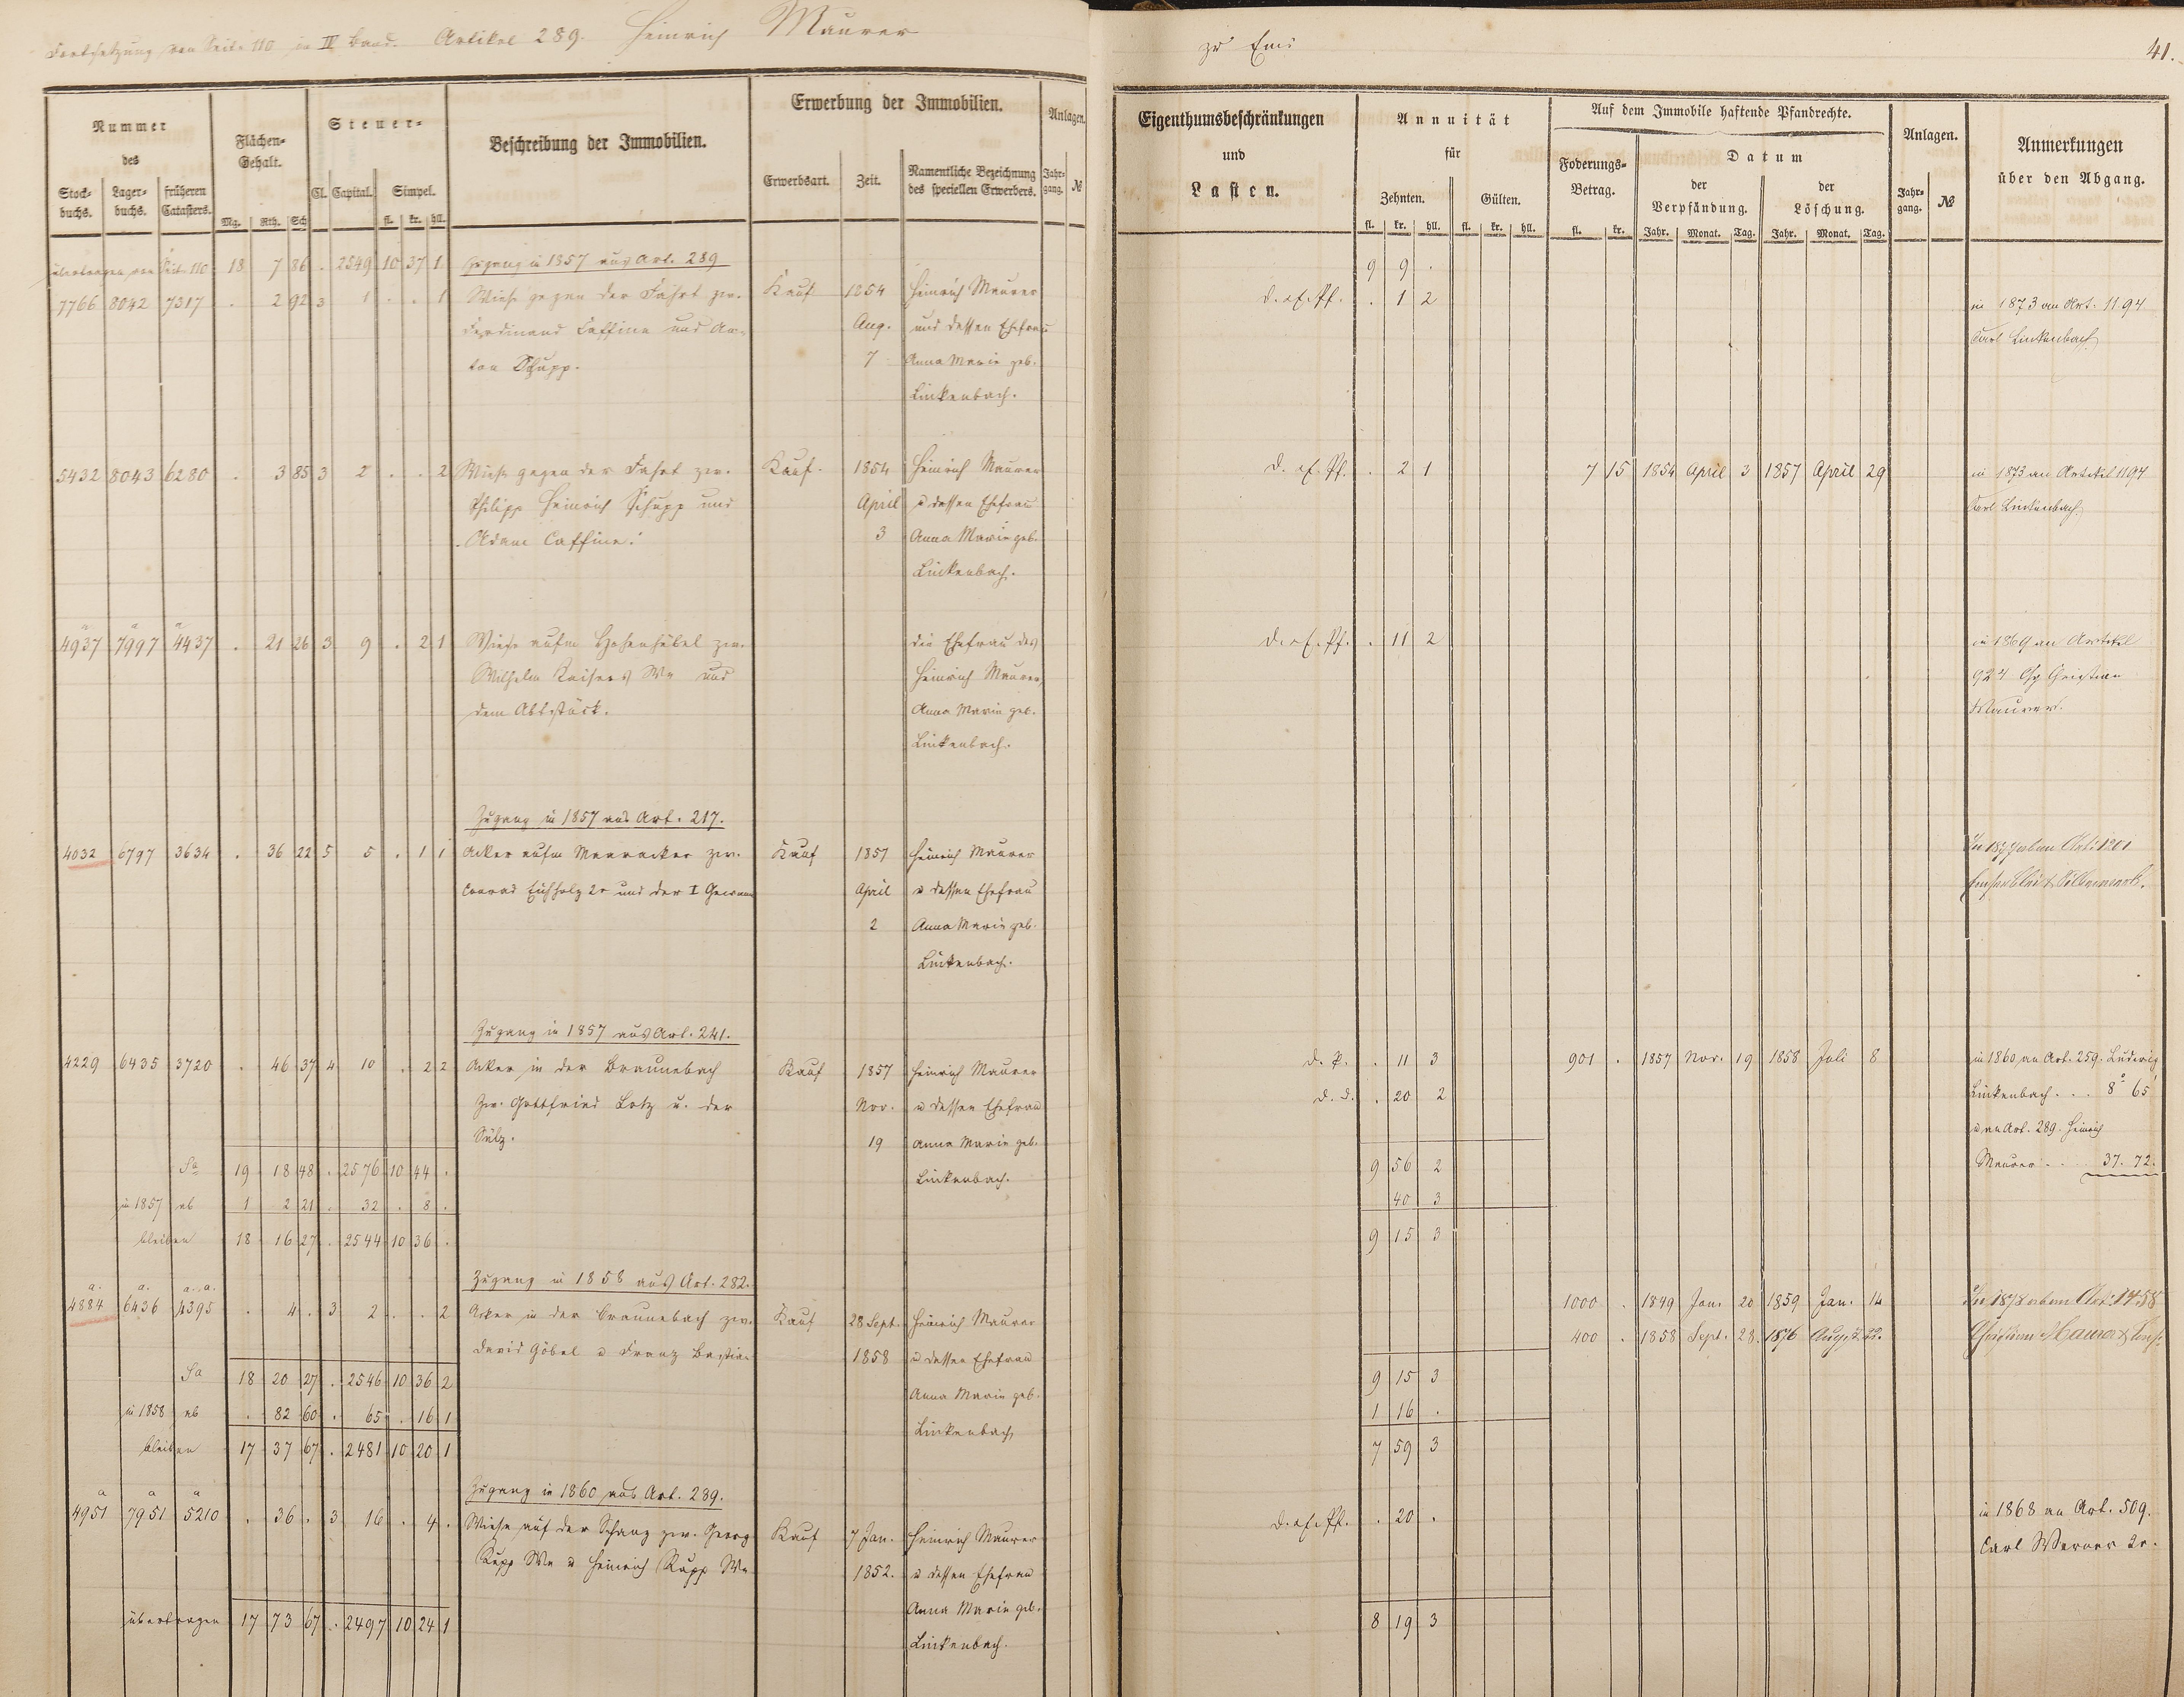 Fortsetzung von Seite 110 in IV Band. Artikel 289. Heinrich Maurer
zu Ems
41.
Nummer
des
Stock-buchs. Lager-buchs. früheren Catasters.
Flächen-Gehalt.
Mg. Rth. Sch
Steuer-
Cl. Capital. Simpel.
fl. kr. hll.
Beschreibung der Immobilien.
Erwerbung der Immobilien.
Erwerbsart. Zeit. Namentliche Bezeichnung des speciellen Erwerbers.
Anlagen.
Jahr-gang. №
Eigenthumsbeschränkungen
und
Lasten.
Annuität
für
Zehnten. Gülten.
fl. kr. hll. fl. kr. hll.
Auf dem Immobile haftende Pfandrechte.
Foderungs-Betrag.
fl. kr.
Datum
der Verpfändung. der Löschung.
Jahr. Monat. Tag. Jahr. Monat. Tag.
Anlagen.
Jahr-gang. №
Anmerkungen
über den Abgang.
übertragen von Seite 110 18 7 86 . 2549 10 37 1 Zugang in 1857 aus Art. 289 9 9 .
7766 8042 7317 . 2 92 3 1 . . 1 Wiese gegen der Fahrt zw. Kauf 1854 Heinrich Maurer d. rf. Pf. . 1 2 in 1873 an Art. 1194
Ferdinand Caffine und An- Aug. und dessen Ehefrau Carl Linkenbach
ton Schupp. 7 Anna Marie geb.
Linkenbach.
5432 8043 6280 . 3 85 3 2 . . 2 Wiese gegen der Fahrt zw. Kauf. 1854 Heinrich Maurer d. rf. Pf. . 2 1 7 15 1854 April 3 1857 April 29 in 1873 an Artikel 1194
Philipp Heinrich Schupp und April u dessen Ehefrau Carl Linkenbach
Adam Caffine. 3 Anna Marie geb.
Linkenbach.
a a a
4937 7997 4437 . 21 26 3 9 . 2 1 Wiese aufm Hasenhübel zw. die Ehefrau des d. rf. Pf. . 11 2 in 1869 an Artikel
Wilhelm Kaisers We und Heinrich Maurer, 924 Christian
dem Abtstück. Anna Marie geb. Maurer.
Linkenbach.
Zugang in 1857 aus Art. 217.
4032 6797 3634 . 36 22 5 5 . 1 1 Acker aufm zw. Kauf 1857 Heinrich Maurer Art. 1201
Conrad Eichholz 2r und der I Gewann April u dessen Ehefrau Emser Blei & Silberwerk.
2 Anna Marie geb.
Linkenbach.
Zugang in 1857 aus Art. 241.
4229 6435 3720 . 46 37 4 10 . 2 2 Acker in der Braunebach Kauf 1857 Heinrich Maurer d. P. . 11 3 901 . 1857 Nov. 19 1858 Juli 8 in 1860 an Art. 259. Ludwig
Zw. Gottfried Lotz u. der Nov. u dessen Ehefrau d. D. . 20 2 Linkenbach . . . 8° 65'
Sulz. 19 Anna Marie geb. u an Art. 289. Heinrich
Linkenbach. Maurer . . . 37. 72.
Sa 19 18 48 . 2576 10 44 . 9 56 2
in 1857 ab 1 2 21 . 32 . 8 . 40 3
bleiben 18 16 27 . 2544 10 36 . 9 15 3
Zugang in 1858 aus Art. 282.
a. a. a.a.
4884 6436 4395 . 4 . 3 2 . . 2 Acker in der Braunebach zw. Kauf 28 Sept. Heinrich Maurer 1000 . 1849 Jan. 20 1859 Jan. 14 In 1878 Art. 1458
David Göbel u Franz Bastian 1858 u dessen Ehefrau 400 . 1858 Sept. 28. 1876 Aug. 22. Christian Maurer
Anna Marie geb.
Linkenbach
Sa 18 20 27 . 2546 10 36 2 9 15 3
in 1858 ab . 82 60 . 65 . 16 1 1 16 .
bleiben 17 37 67 . 2481 10 20 1 7 59 3
Zugang in 1860 aus Art. 289.
a a a
4951 7951 5210 . 36 . 3 16 . 4 . Wiese auf der Schanz zw. Georg Kauf 7 Jan. Heinrich Maurer d. rf. Pf. . 20 . in 1868 an Art. 509.
Rupp We u Heinrich Rupp We 1852. u dessen Ehefrau Carl Werner 2r.
Anna Marie geb.
Linkenbach.
übertragen 17 73 67 . 2497 10 24 1 8 19 3